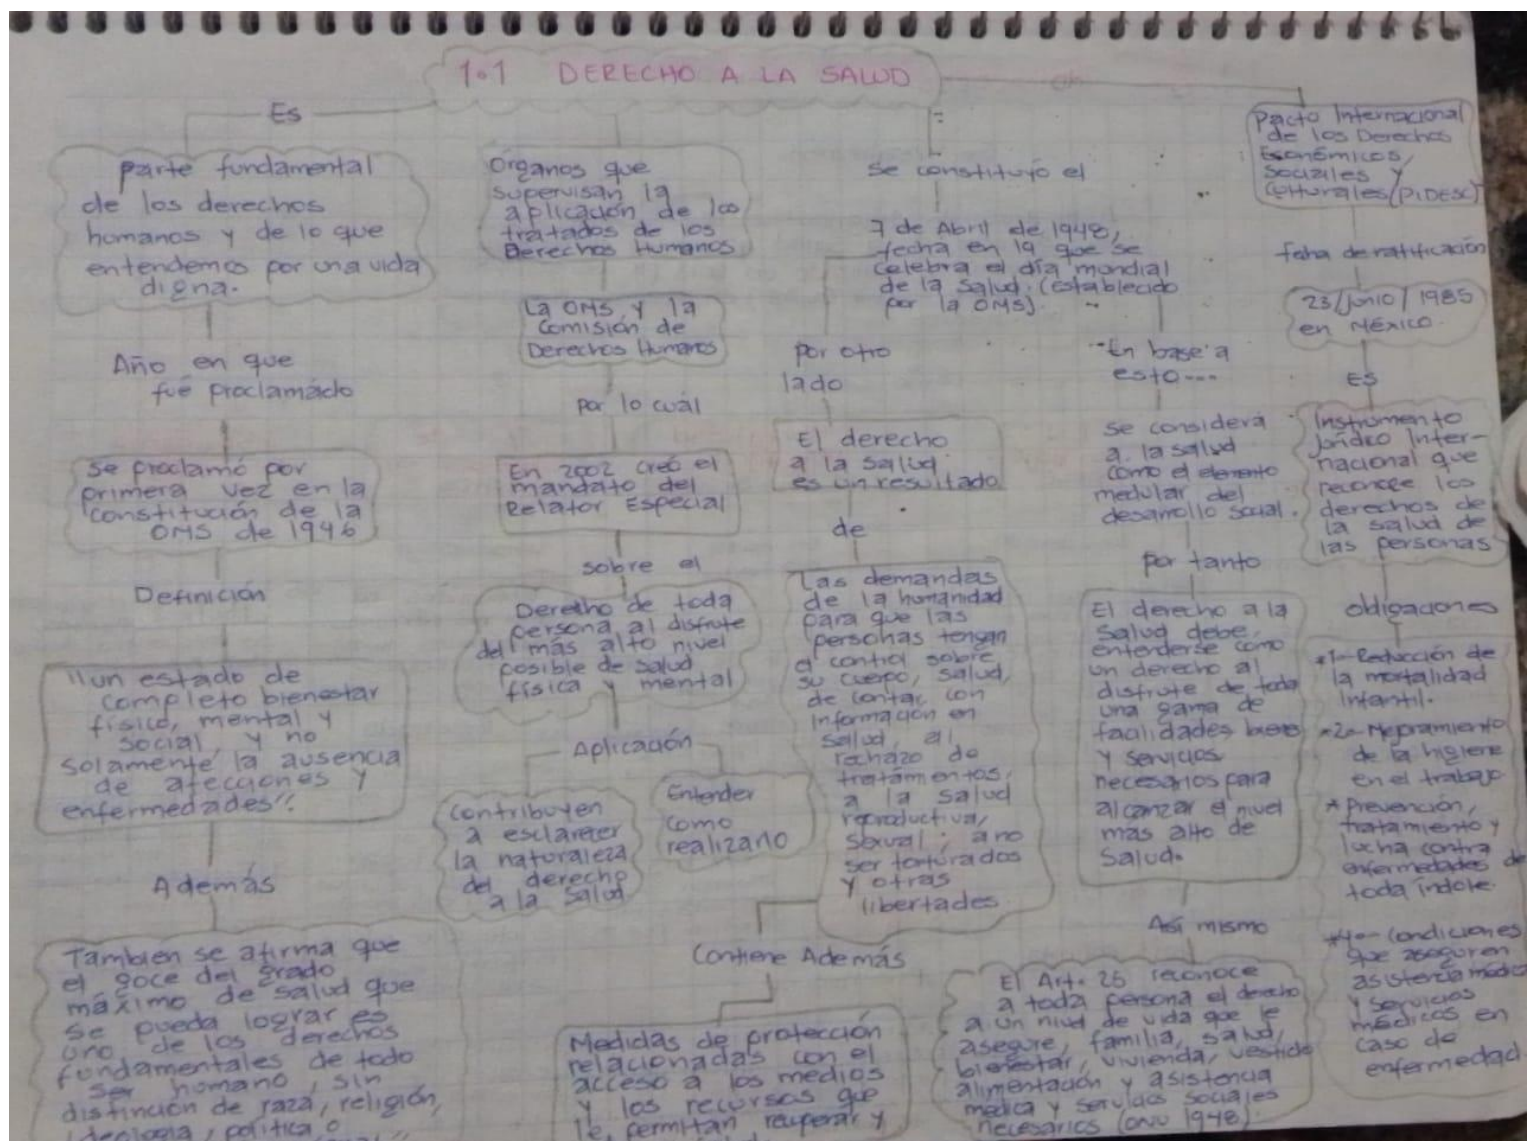 1.1 DERECHO A LA SALUD
Es
parte fundamental
de los derechos
humanos y de lo que
entendemos por una vida
digna.
Año en que
fué proclamádo
Se proclamó por
primera vez en la
constitución de la
OMS de 1946
Definición
"un estado de
completo bienestar
físico, mental y
social, y no
solamente la ausencia
de afecciones y
enfermedades".
Además
También se afirma que
el goce del grado
máximo de salud que
se pueda lograr es
uno de los derechos
fundamentales de todo
ser humano, sin
distinción de raza, religión,
ideología, política o
Organos que
supervisan la
aplicación de los
tratados de los
Derechos Humanos
La OMS y la
Comisión de
Derechos Humanos
por lo cuál
En 2002 creó el
mandato del
Relator Especial
sobre el
Derecho de toda
persona al disfrute
del más alto nivel
posible de salud
física y mental
Aplicación
Contribuyen
a esclarecer
la naturaleza
del derecho
a la salud
Entender
como
realizarlo
Se constituyó el
7 de Abril de 1948,
fecha en la que se
celebra el día mundial
de la salud. (establecido
por la OMS).
por otro
lado
El derecho
a la salud
es un resultado
de
Las demandas
de la humanidad
para que las
personas tengan
el control sobre
su cuerpo, salud,
de contar con
información en
salud, al
rechazo de
tratamientos,
a la salud
reproductiva,
sexual; a no
ser torturados
y otras
libertades
Contiene Además
Medidas de protección
relacionadas con el
acceso a los medios
y los recursos que
le permitan recuperar y
En base a
esto...
Se considera
a la salud
como el elemento
medular del
desarrollo social.
por tanto
El derecho a la
salud debe
entenderse como
un derecho al
disfrute de toda
una gama de
facilidades bienes
y servicios
necesarios para
alcanzar el nivel
más alto de
Salud.
Así mismo
El Art. 25 reconoce
a toda persona el derecho
a un nivel de vida que le
asegure, familia, salud,
bienestar, vivienda, vestido
alimentación y asistencia
médica y servicios sociales
necesarios (ONU 1948).
Pacto Internacional
de los Derechos
Económicos,
Sociales y
Culturales (PIDESC)
fecha de ratificación
23/junio/1985
en México.
Es
Instrumento
Jurídico Inter-
nacional que
reconoce los
derechos de
la salud de
las personas
obligaciones
*1- Reducción de
la mortalidad
Infantil.
*2- Mejoramiento
de la higiene
en el trabajo
* Prevención,
tratamiento y
lucha contra
enfermedades de
toda índole.
*4- Condiciones
que aseguren
asistencia médica
y servicios
médicos en
caso de
enfermedad.